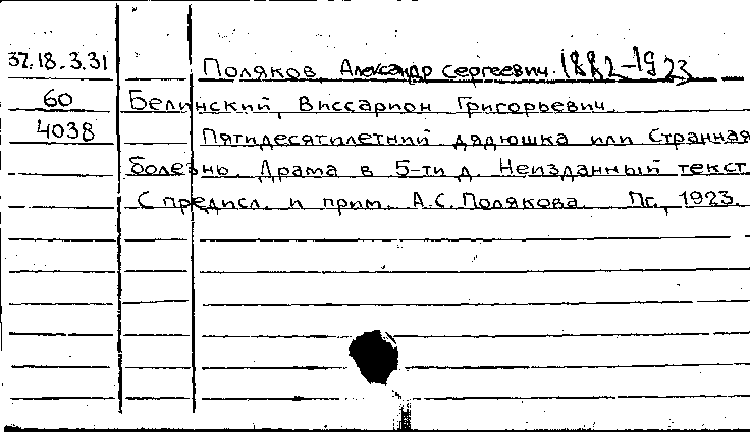 37.18.3.31 Поляков, Александр Сергеевич. 1882-1923
60 Белинский, Виссарион Григорьевич.
4038 Пятидесятилетний дядюшка или Странная
болезнь. Драма в 5-ти д. Неизданный текст.
С предисл. и прим. А.С. Полякова. Пг., 1923.